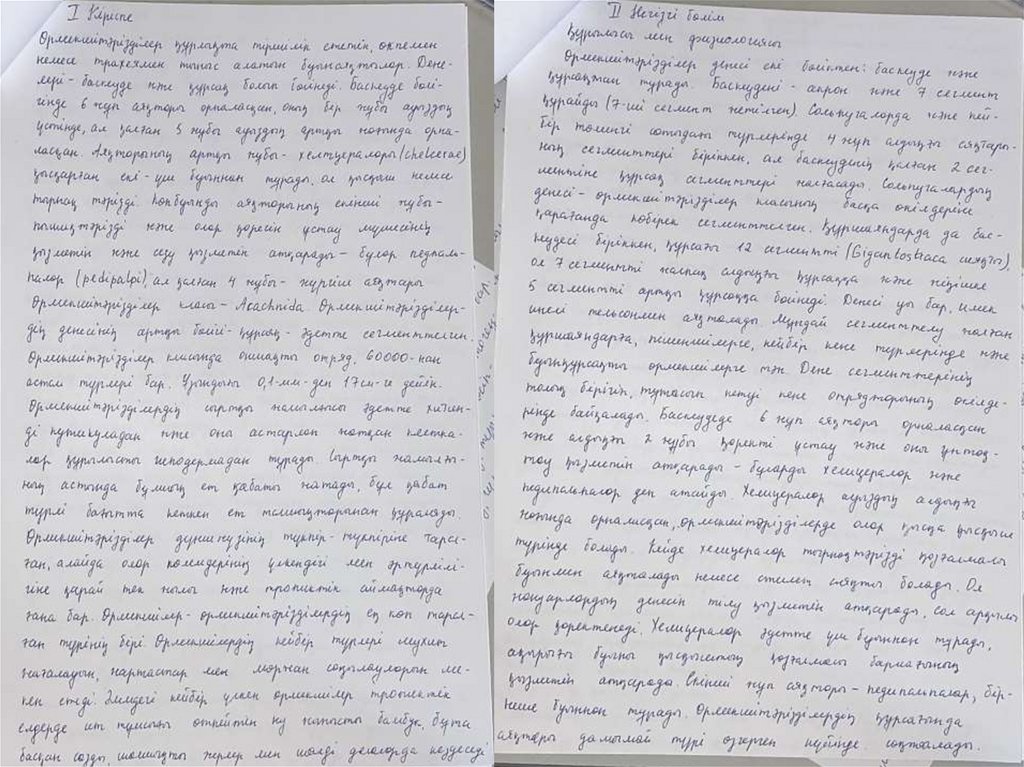 I Кіріспе
Өрмекшітәрізділер құрлықта тіршілік ететін, өкпемен
немесе трахеямен тыныс алатын буынаяқтылар. Дене-
лері - баскеуде және құрсақ болып бөлінеді. Баскеуде бөлі-
гінде 6 жұп аяқтары орналасқан, оның бер жұбы ауыздың
үстінде, ал қалған 5 жұбы ауыздың артқы жағында орна-
ласқан. Аяқтарының артқы жұбы - хелицералары (chelicerae)
қысқарған екі-үш буыннан тұрады, ол қысқыш немесе
тырнақ тәрізді. Көпбуынды аяқтарының екінші жұбы -
пышақтәрізді және олар қорегін ұстау мүшесінің
қызметін және сезу қызметін атқарады - бұлар педипаль-
палар (pedipalpi), ал қалған 4 жұбы - жүргіш аяқтары
Өрмекшітәрізділер класы - Arachnida. Өрмекшітәрізділер-
дің денесінің артқы бөлігі - құрсақ - әдетте сегменттелген.
Өрмекшітәрізділер класында ошақты отряд, 60000-нан
астам түрлері бар. Ұзындығы 0,1-мм-ден 17см-ге дейін.
Өрмекшітәрізділердің сыртқы жамылғысы әдетте хитин-
ді кутикуладан және оны астарлап жатқан клетка-
лар құрылысты гиподермадан тұрады. Сыртқы жамылғы-
ның астында бұлшық ет қабаты жатады, бұл қабат
түрлі бағытта кеткен ет талшықтарынан құралады.
Өрмекшітәрізділер дүние жүзінің түкпір-түкпіріне тара-
ған, алайда олар көлемдерінің үлкендігі мен әртүрлілі-
гіне қарай тек жылы және тропиктік аймақтарда
ғана бар. Өрмекшілер - өрмекшітәрізділердің ең көп тарал-
ған түрінің бері. Өрмекшілердің кейбір түрлері мұхит
жағалауын, жартастар мен маржан соқпауларын ме-
кен етеді. Әлемдегі кейбір үлкен өрмекшілер тропиктік
елдерде ит тұмсығы өтпейтін ну нысты бамбук, бұта
басқан сазды, шалшықты жерлер мен шөлді далаларда кездеседі
II Негізгі бөлім
Құрылысы мен физиологиясы
Өрмекшітәрізділер денесі екі бөліктен: баскеуде және
құрсақтан тұрады. Баскеудені - акрон және 7 сегмент
құрайды (7-ші сегмент жетілген). Сольпугаларда және кей-
бір төменгі сатыдағы түрлерінде 4 жұп алдыңғы аяқтары-
ның сегменттері біріккен, ал баскеудің қалған 2 сег-
ментіне құрсақ сегменттері жалғасады. Сольпугалардың
денесі - өрмекшітәрізділер класының басқа өкілдеріне
қарағанда көбірек сегменттелген. Құршаяндарда да бас-
кеудесі біріккен, құрсағы 12 сегментті (Gigantostraca сияқты),
ол 7 сегментті жалпақ алдыңғы құрсаққа және жіңішке
5 сегментті артқы құрсаққа бөлінеді. Денесі уы бар, имек
инелі тельсонмен аяқталады. Мұндай сегменттелу жалған
құршаяндарға, пішеншілерге, кейбір кене түрлерінде және
буынқұрсақты өрмекшілерге тән. Дене сегменттерінің
толық бірігіп, тұтасып кетуі кене отрядтарының өкілде-
рінде байқалады. Баскеудеде 6 жұп аяқтары орналасқан
және алдыңғы 2 жұбы қоректі ұстау және оны ұнтақ-
тау қызметін атқарады - бұларды хелицералар және
педипальпалар деп атайды. Хелицералар ауыздың алдыңғы
жағында орналасқан, өрмекшітәрізділерде олар қысқа қысқыш
түрінде болады. Кейде хелицералар тырнақтәрізді қозғалмалы
буынмен аяқталады немесе стилет сияқты болады. Ол
жануарлардың денесін тілу қызметін атқарады, сол арқылы
олар қоректенеді. Хелицералар әдетте үш буыннан тұрады,
ақырғы буыны қысқыштың қозғалмалы бармағының
қызметін атқарады. Екінші жұп аяқтары - педипальпалар, бір-
неше буыннан тұрады. Өрмекшітәрізділердің құрсағында
аяқтары дамымай түрі өзгерген күйінде сақталады.